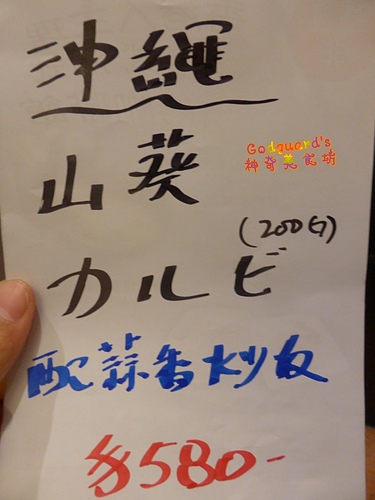 沖繩
山葵
Godguard's
神奇美食坊
(200G)
カルビ
配蒜香炒飯
$580-